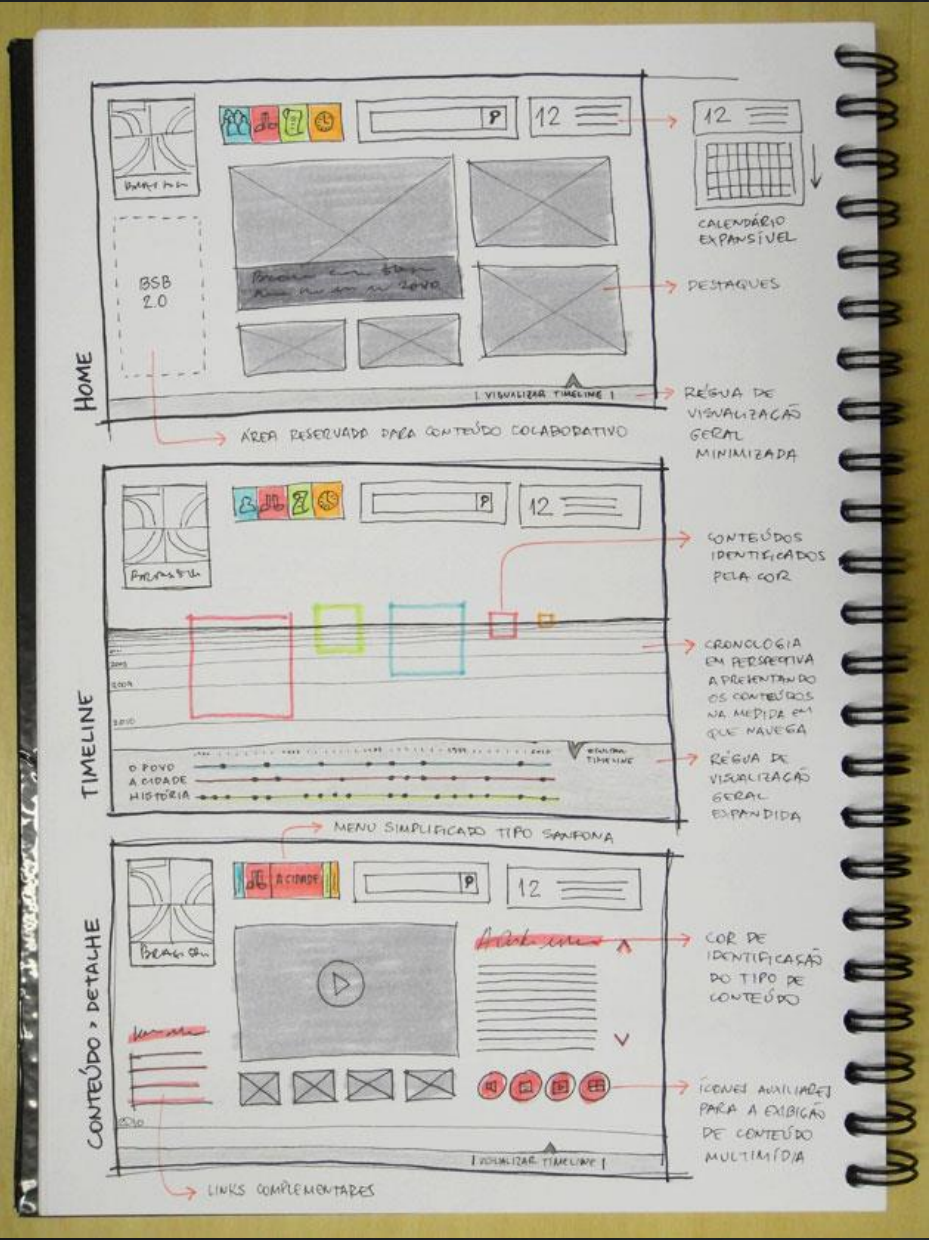 HOME
BSB
2.0
P
12
12
CALENDÁRIO
EXPANSÍVEL
DESTAQUES
| VISUALIZAR TIMELINE |
RÉGUA DE
VISUALIZAÇÃO
GERAL
MINIMIZADA
ÁREA RESERVADA PARA CONTEÚDO COLABORATIVO
TIMELINE
P
12
CONTEÚDOS
IDENTIFICADOS
PELA COR
2009
2010
CRONOLOGIA
EM PERSPECTIVA
APRESENTANDO
OS CONTEÚDOS
NA MEDIDA EM
QUE NAVEGA
2010
TIMELINE
O POVO
A CIDADE
HISTÓRIA
RÉGUA DE
VISUALIZAÇÃO
GERAL
EXPANDIDA
MENU SIMPLIFICADO TIPO SANFONA
CONTEÚDO > DETALHE
A CIDADE
P
12
COR DE
IDENTIFICAÇÃO
DO TIPO DE
CONTEÚDO
ÍCONES AUXILIARES
PARA A EXIBIÇÃO
DE CONTEÚDO
MULTIMÍDIA
2010
| VISUALIZAR TIMELINE |
LINKS COMPLEMENTARES